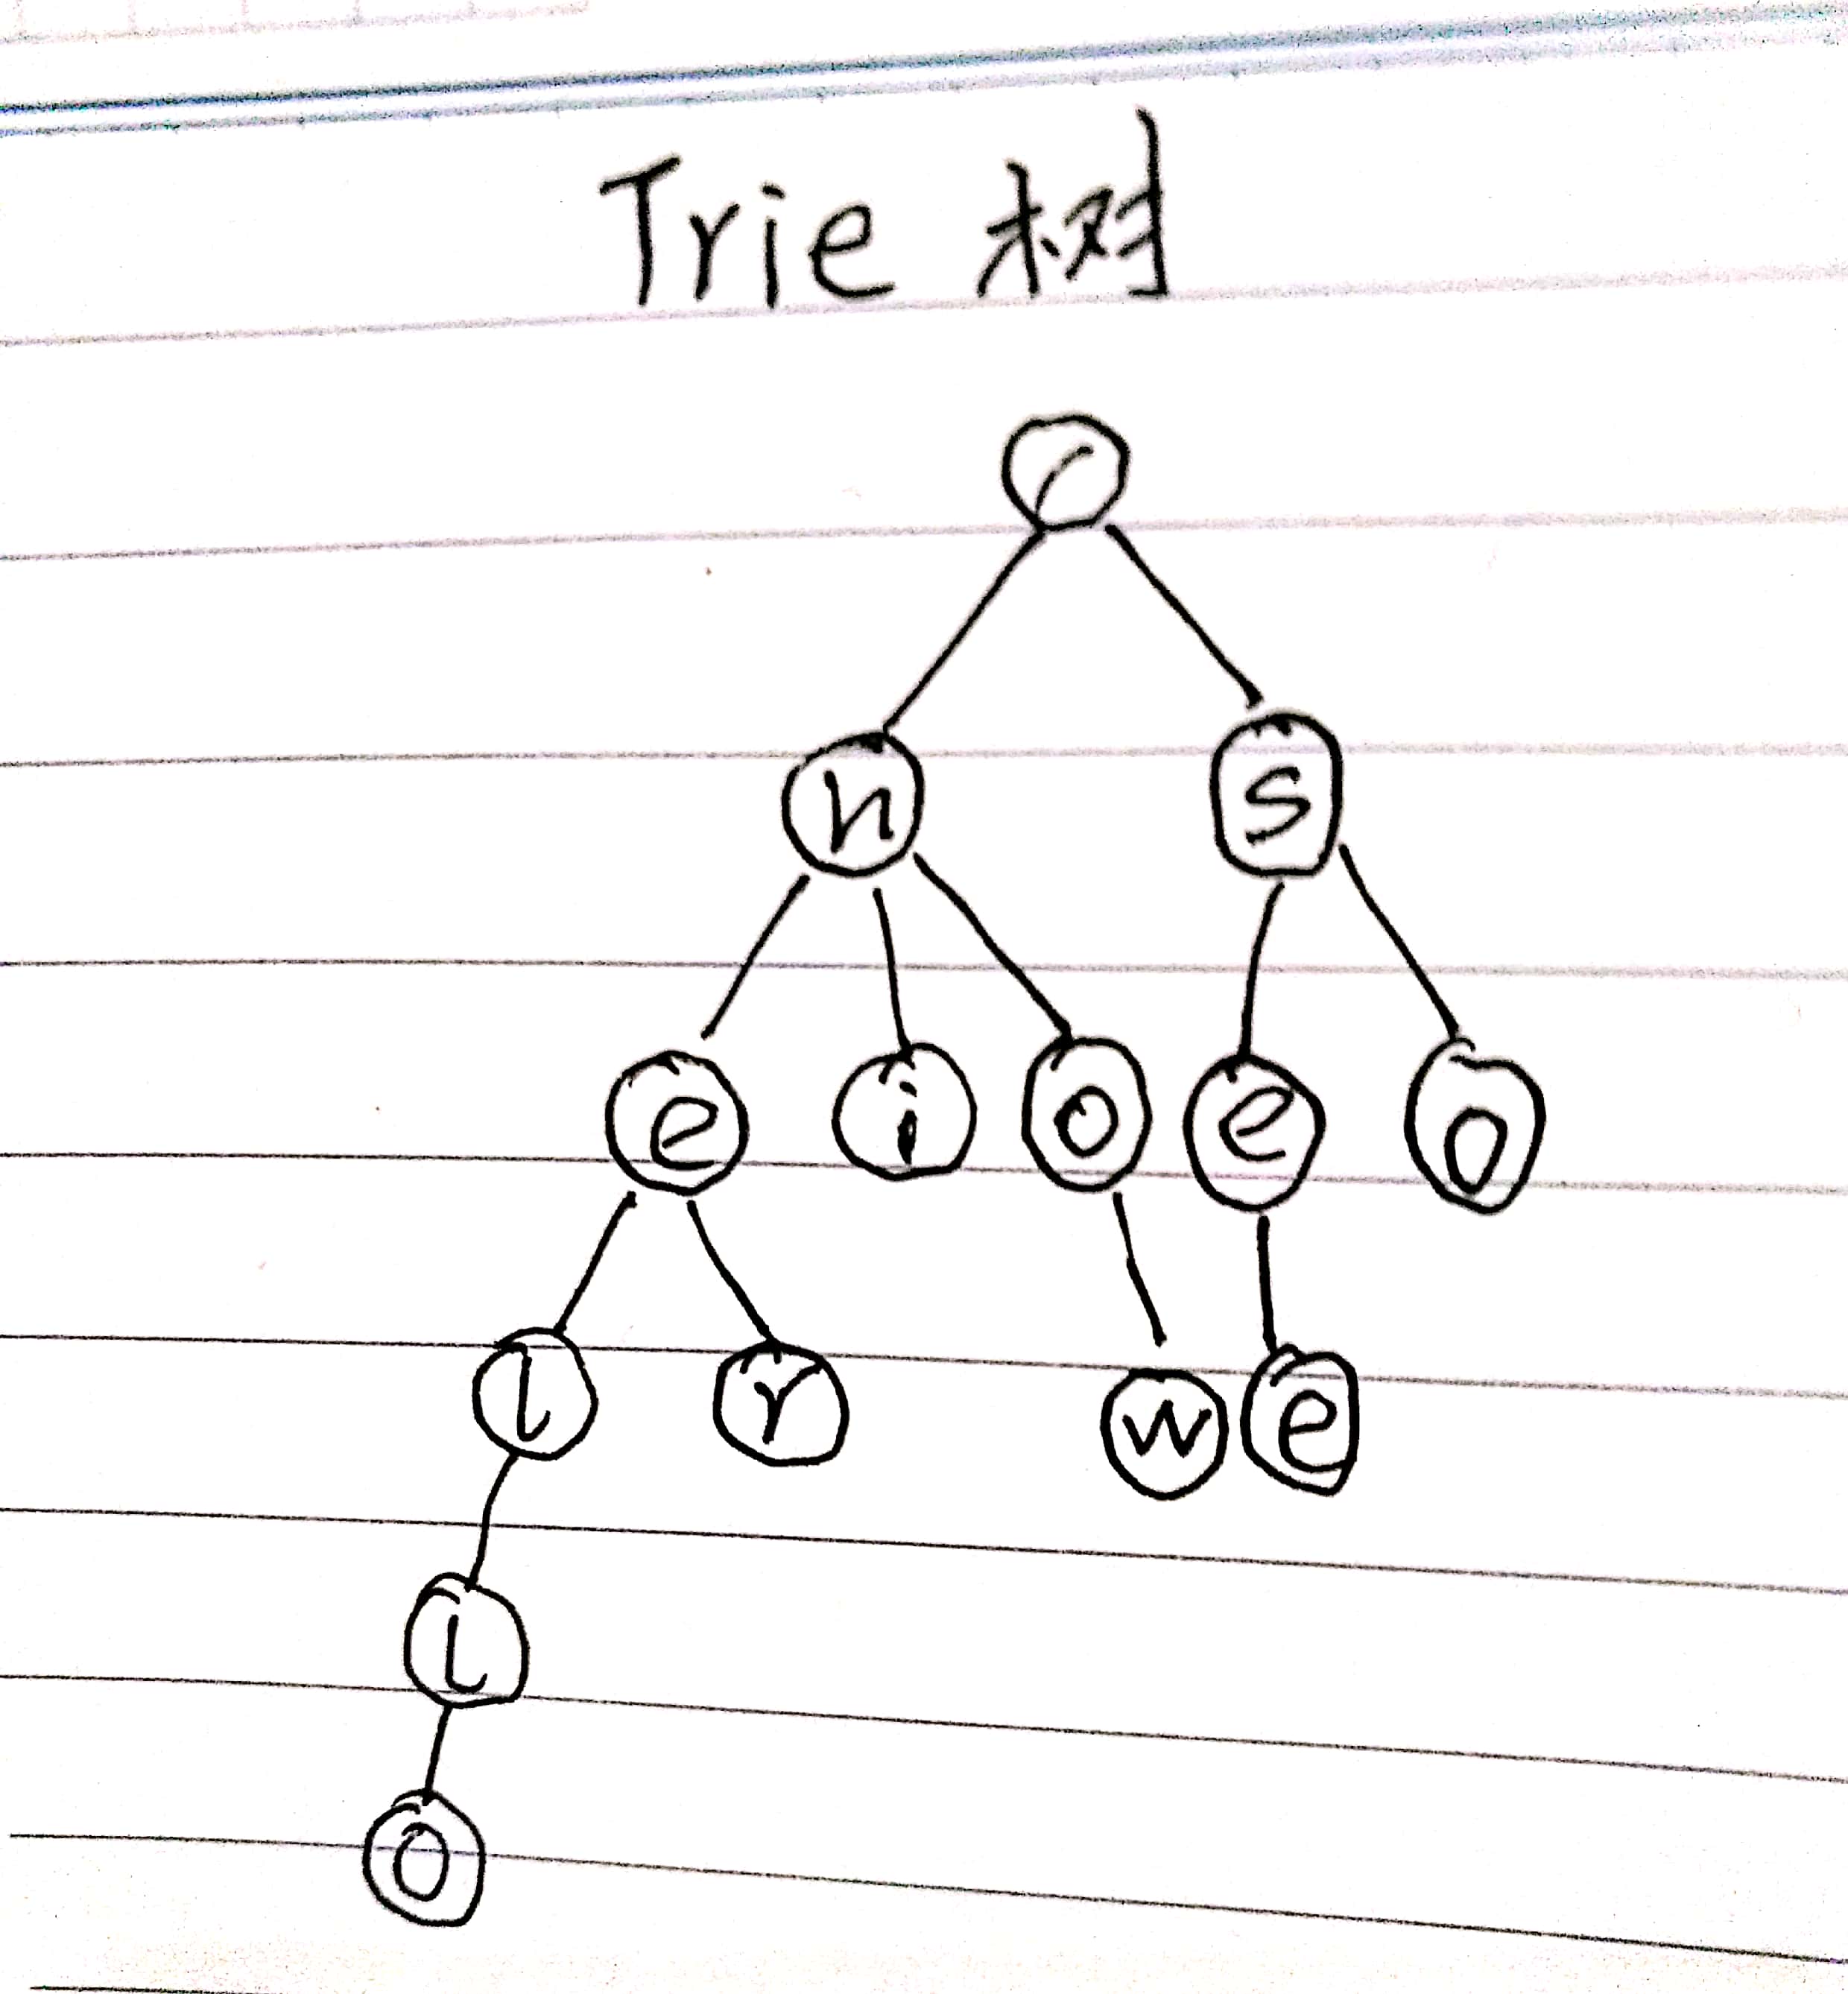 Trie 树
/
h s
e i o e o
l r w e
l
o